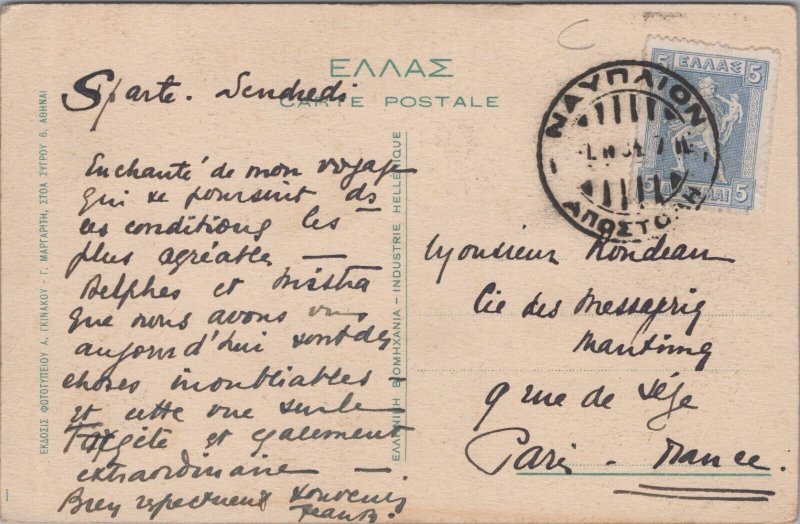 ΕΛΛΑΣ
CARTE POSTALE
Sparte. Vendredi
Enchanté de mon voyage
qui se poursuit ds
les conditions les
plus agréables —
Delphes et Mistra
que nous avons vus
aujourd'hui sont des
choses inoubliables -
et cette vue sur le
Taygète et également
extraordinaire —
Bien respectueux souvenir
Monsieur Rondeau
Cie des Messageries
Maritimes
9 rue de Sèze
Paris - France.
ΕΚΔΟΣΙΣ ΦΩΤΟΤΥΠΕΙΟΥ Α. ΓΚΙΝΑΚΟΥ - Γ. ΜΑΡΓΑΡΙΤΗ, ΣΤΟΑ ΣΥΓΡΟΥ 6, ΑΘΗΝΑΙ
ΕΛΛΗΝΙΚΗ ΒΙΟΜΗΧΑΝΙΑ - INDUSTRIE HELLENIQUE
5 ΕΛΛΑΣ 5
5 5
ΝΑΥΠΛΙΟΝ
ΑΠΟΣΤΟΛΗ